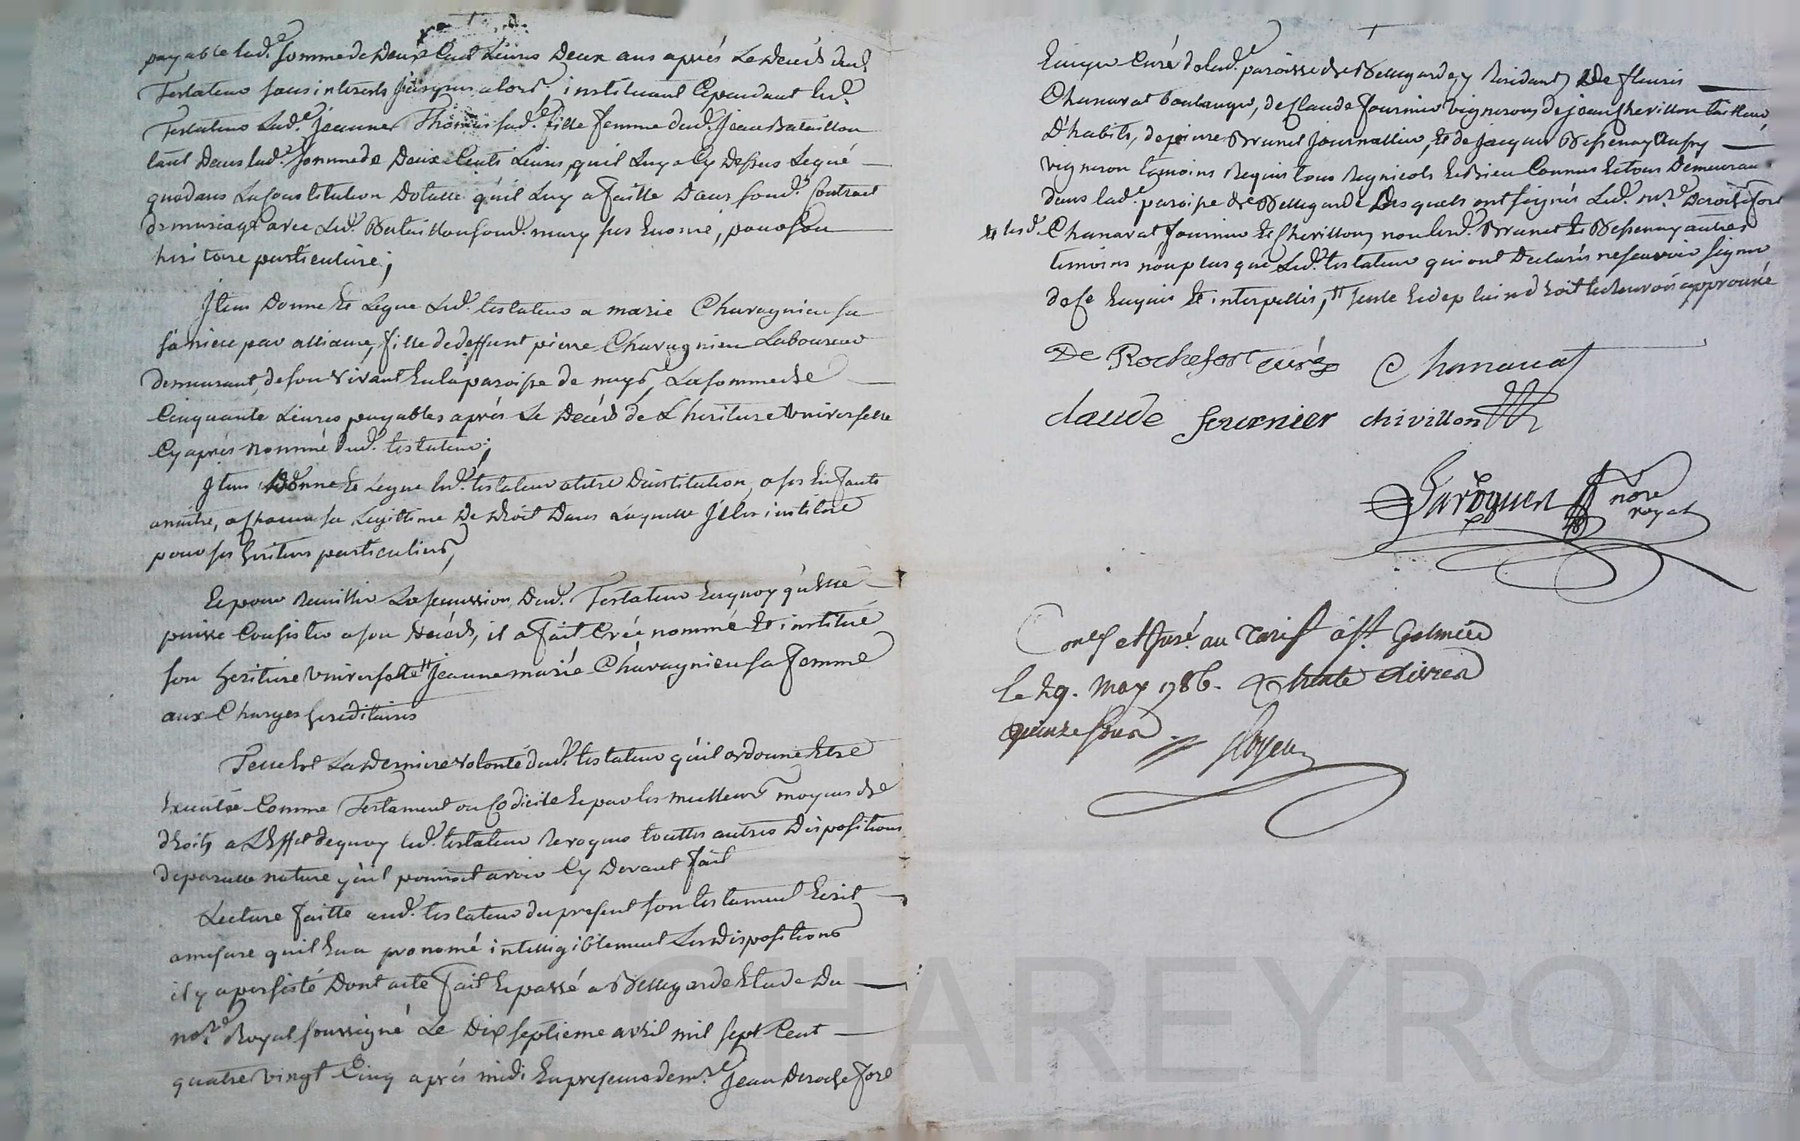 payable lad.e somme de Deux Cent Livres Deux ans après Le Decès dud.
Testateur sans interests jusques alors, instituant Cependant led.
Testateur Lad.e Jeanne Thomas sad.e fille femme dud. Jean Bataillon
tant Dans lad.e somme de Deux Cents Livres qu'il Luy a Cy Dessus Legué
que dans La Constitution Dotalle qu'il Luy a faitte Dans son d. Contract
de mariage avec Led. Bataillon son d. mary ses nommé, pour son
heritiere particuliere;
Item Donne Et Legue Led. testateur a marie Charagnieu sa
niece par alliance, fille de deffunt pierre Charagnieu Laboureur
demeurant de son vivant En la paroisse de La somme de
Cinquante Livres payables après Le Decès de L'heritiere universelle
Cy après nommé dud. testateur;
Item Donne Et Legue led. testateur a titre D'institution, a ses Enfants
a naitre, a chacun sa Legittime De droit Dans Laquelle il les institue
pour ses heritiers particuliers,
Et pour recueillir La succession Dud. Testateur En quoy qu'Elle
puisse Consister a son Décéds, il a fait Créé nommé Et institué
son heritiere universelle Jeanne marie Charagnieu sa femme
aux Charges hereditaires
Telle Est La Derniere volonté dud. testateur qu'il ordonne Estre
Executée Comme Testament ou Codicile Et par les meilleurs moyens de
droits a L'Effet de quoy led. testateur Revoque touttes autres Dispositions
de pareille nature qu'il pourroit avoir Cy Devant fait
Lecture faitte aud. testateur du present son testament Ecrit
a mesure qu'il En a pronomé intelligiblement Les dispositions
il y a persisté Dont acte fait Et passé a Bellegarde Etude Du
no.re Royal soussigné Le Dix septieme avril mil sept Cent
quatre vingt Cinq après midi En presence de m.re Jean Derochefort
Curé de lad.e paroisse de Bellegarde y Residant, De fleuris
Chanavat boulanger, de Claude fournier vigneron, de jean Chevillon tailleur
D'habits, de pierre Brunel journallier, Et de jacques Bessenay
vigneron temoins Requis tous Regnicols Et bien Connus Et tous Demeurant
dans lad.e paroisse de Bellegarde Desquels ont signés Led. m.re Derochefort
lesd. Chanavat fournier Et Chevillon, non lesd. Brunel Et Bessenay autres
temoins non plus que Led. testateur qui ont Declarés ne sçavoir signer
de ce Enquis Et interpellés, approuvé
De Rochefort curé Chanavat
claude fournier chivillon
nore
royal
Con.é et Insé. au Tarif à St. Galmier
le 29. May 1786. trente Livres
quinze sous